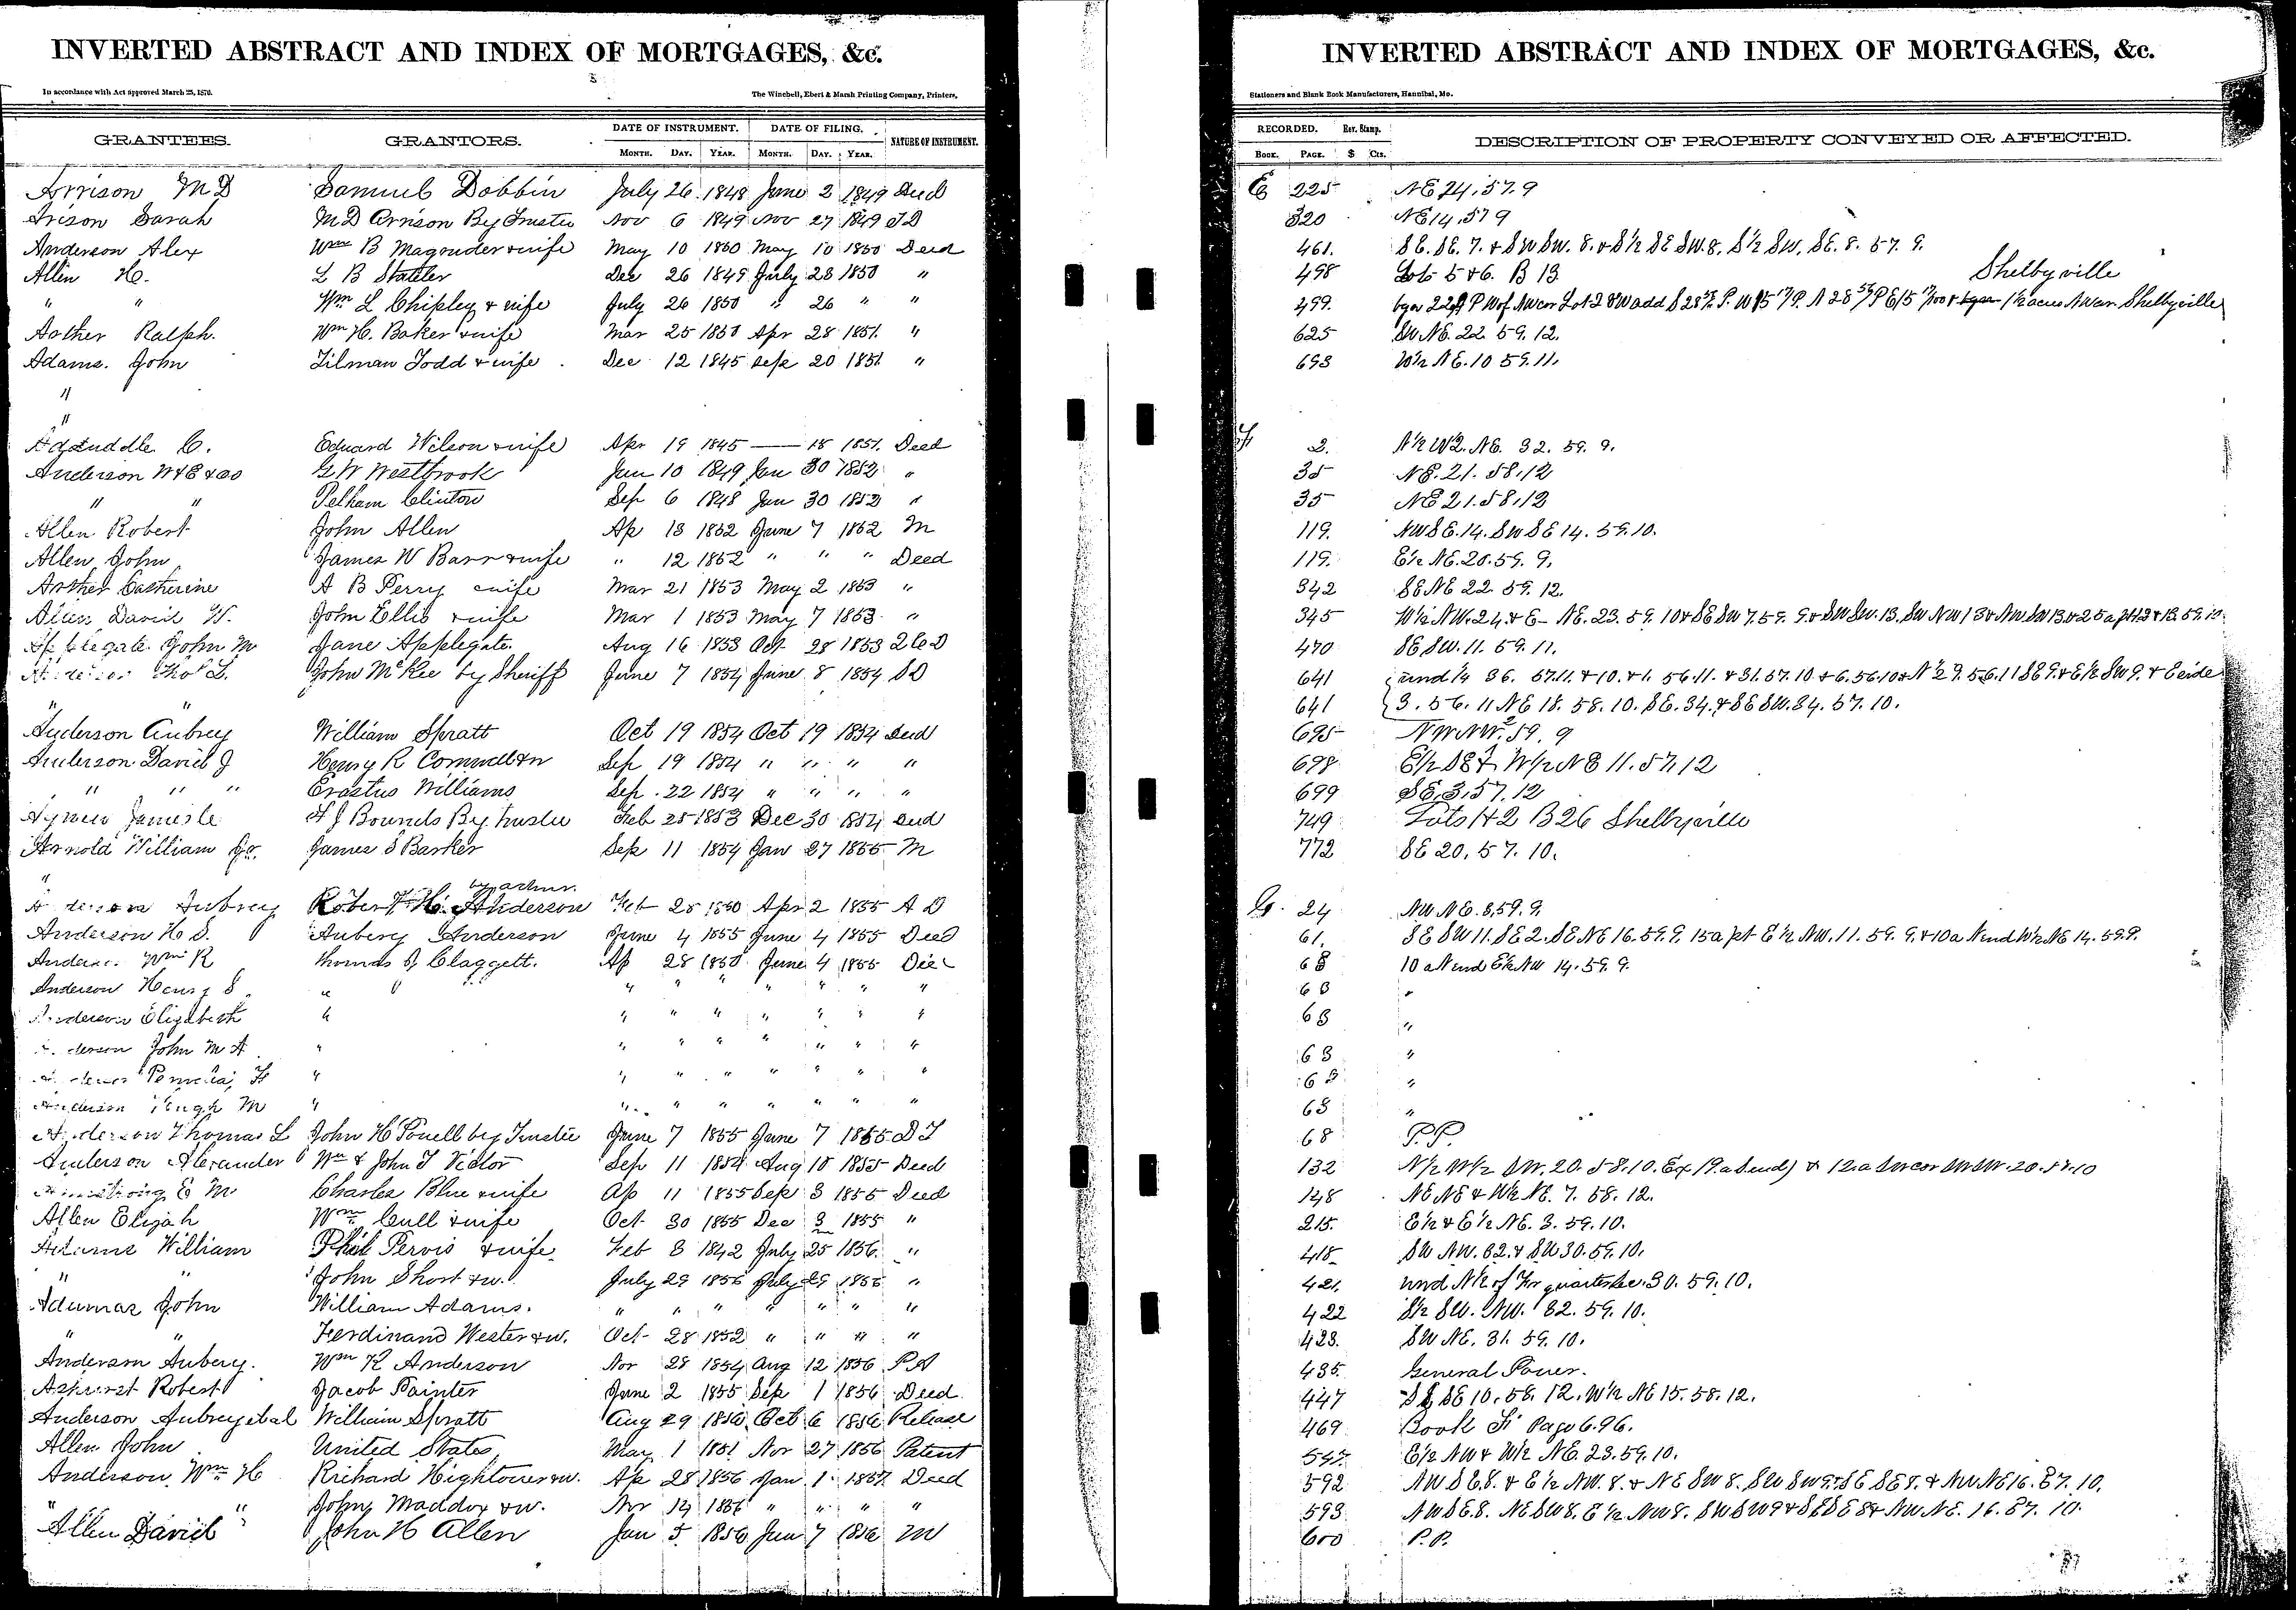 INVERTED ABSTRACT AND INDEX OF MORTGAGES, &c.
In accordance with Act approved March 25, 1870.
The Winchell, Ebert & Marsh Printing Company, Printers,
GRANTEES. GRANTORS. DATE OF INSTRUMENT. DATE OF FILING. NATURE OF INSTRUMENT.
MONTH. DAY. YEAR. MONTH. DAY. YEAR.
Arrison M D Samuel Dobbin July 26 1848 June 2 1849 Deed
Arison Sarah M D Arrison By Trustee Nov 6 1849 Nov 27 1849 T D
Anderson Alex Wm B Magruder & wife May 10 1850 May 10 1850 Deed
Allen H. L B Stateler Dec 26 1849 July 23 1850 "
" " Wm L Chipley & wife July 26 1850 " 26 " "
Anther Ralph. Wm H. Baker & wife Mar 25 1851 Apr 28 1851. "
Adams. John Tilman Todd & wife Dec 12 1845 Sep 20 1851 "
"
"
C. Edward Wilson & wife Apr 19 1845 — 18 1851. Deed
Anderson G W Westbrook Jan 10 1849 Jan 30 1852 "
" " Pelham Clinton Sep 6 1848 Jan 30 1852 "
Allen Robert John Allen Ap 13 1852 June 7 1852 M
Allen John James W Barr & wife " 12 1852 " " " Deed
Anther Catherine A B Perry wife Mar 21 1853 May 2 1853 "
Allen David W. John Ellis & wife Mar 1 1853 May 7 1853 "
Applegate John M Jane Applegate. Aug 16 1853 Oct 28 1853
Thos L. John McKee by Sheriff June 7 1854 June 8 1854 S D
" "
Anderson Aubrey William Spratt Oct 19 1854 Oct 19 1854 Deed
Anderson David J Henry R Sep 19 1854 " " " "
" " " Erastus Williams Sep. 22 1854 " " " "
Bounds By Trustee Feb 25 1853 Dec 30 1854 Deed
Arnold William James S Barker Sep 11 1854 Jan 27 1855 M
"
Aubrey Robert H. Anderson Feb 25 1850 Apr 2 1855 A D
Anderson H S. Aubery Anderson June 4 1855 June 4 1855 Deed
Wm R Thomas J Claggett. Ap 28 1855 June 4 1855
Anderson Henry S " " " " " " " "
Anderson Elizabeth " " " " " " " "
John M A " " " " " " " "
" " " " " " " "
Anderson Hugh M " " " " " " " "
Anderson Thomas L John H Powell by Trustee June 7 1855 June 7 1855 D T
Anderson Alexander Wm & John T Victor Sep 11 1854 Aug 18 1855 Deed
Armstrong E M Charles Blue & wife Ap 11 1855 Sep 3 1855 Deed
Allen Elijah Wm Cull & wife Oct 30 1855 Dec 3 1855 "
Adams William Phil Pervis & wife Feb 8 1842 July 25 1856 "
" " John Short & w. July 29 1856 July 29 1856 "
John William Adams. " " " " " " "
" " Ferdinand Wester & w. Oct 28 1852 " " " "
Anderson Aubery. Wm K Anderson Nov 28 1854 Aug 12 1856 P A
Ashurst Robert Jacob Painter June 2 1855 Sep 1 1856 Deed
Anderson Aubrey et al William Spratt Aug 29 1856 Oct 6 1856 Release
Allen John United States May 1 1851 Nov 27 1856 Patent
Anderson Wm H Richard Hightower & w. Ap 28 1856 Jan 1 1857 Deed
" " John Maddox & w. 14 1856 " " " "
Allen David John H Allen Jan 5 1856 Jan 7 1856 M
INVERTED ABSTRACT AND INDEX OF MORTGAGES, &c.
Stationers and Blank Book Manufacturers, Hannibal, Mo.
RECORDED. Rev. Stamp. DESCRIPTION OF PROPERTY CONVEYED OR AFFECTED.
BOOK. PAGE. $ Cts.
E 225 NE 24, 57. 9
320 NE 14, 57 9
461. SE. SE. 7. & SW SW. 8. & S½ SE SW. 8. S½ SW. SE. 8. 57. 9.
498 Lots 5 & 6. B 13 Shelbyville
499. Shelbyville
625 SW NE. 22. 59. 12.
693 W½ NE. 10 59. 11.
F 2. N½ W2. NE. 32. 59. 9.
35 NE. 21. 58. 12
35 NE 21. 58. 12
119. NW SE. 14. SW SE 14. 59. 10.
119. E½ NE. 20. 59. 9.
342 SE NE 22. 59. 12.
345 W½ NW. 24. & E— NE. 23. 59. 10 & SE SW 7. 59. 9.
470 SE SW. 11. 59. 11.
641 und ¼ 36. 57. 11. & 10. & 1. 56. 11. & 31. 57. 10 & 6. 56. 10
641 3. 56. 11 NE 18. 58. 10. SE. 34. & SE SW. 34. 57. 10.
695 NW NW. 2 59. 9
698 E½ SE & W½ NE 11. 57. 12
699 SE, 3, 57. 12
749 Lots 1 & 2 B 26 Shelbyville
772 SE 20. 57. 10.
G. 24 NW NE. 8, 59. 9.
61. SE SW 11. SE 2. SE NE 16. 59. 9. 15a pt E½ NW. 11. 59. 9. & 10a N end W½ NE 14. 59. 9.
63 10 a N end E½ NW 14. 59. 9.
63 "
63 "
63 "
63 "
63 "
68 P. P.
132 N½ W½ SW. 20. 58. 10. Ex (9. a S end) & 12. a SW cor SW SW. 20. 58. 10
148 NE NE & W½ NE. 7. 58. 12.
215. E½ & E½ NE. 3. 59. 10.
418 SW NW. 32. & SW 30. 59. 10.
421. und N½ of quarter Sec. 30. 59. 10.
422 S½ SW. NW. 32. 59. 10.
423. SW NE. 31. 59. 10.
435. General Power.
447 SE SE 10. 58. 12. W½ NE 15. 58. 12.
469 Book F Page 696.
E½ NW & W½ NE. 23. 59. 10.
592 NW SE 8. & E½ NW. 8. & NE SW 8. SW SW 9. SE SE 8. & NW NE 16. 57. 10.
593 NW SE. 8. NE SW 8. E½ NW 8. SW SW 9 & SE SE 8 & NW NE. 16. 57. 10.
600 P. P.